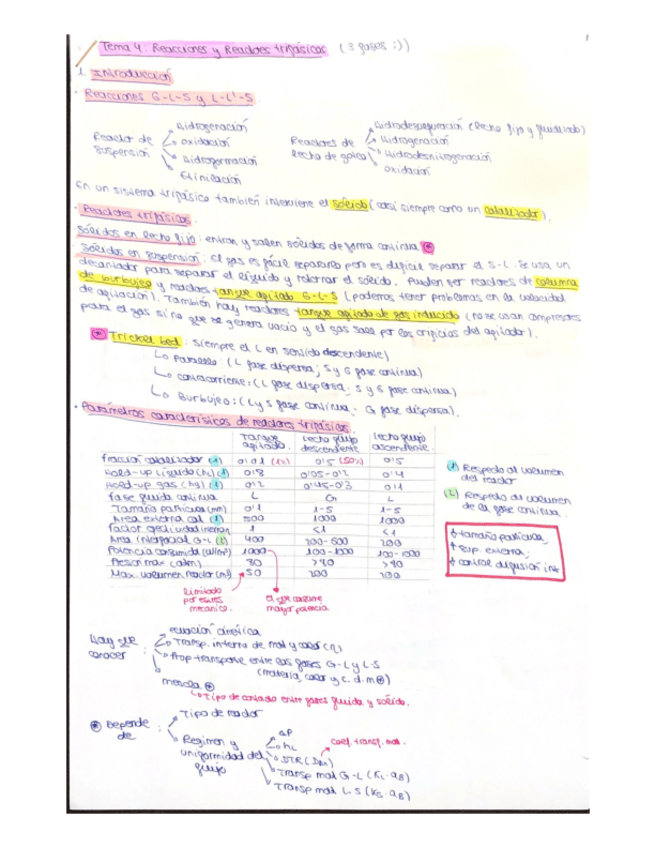 Tema 4. Reacciones y Reactores trifásicos (3 fases :))
1. Introducción
· Reacciones G-L-S y L-L'-S.
Reactor de suspensión
Hidrogenación
oxidación
Hidroformación
Etinilación
Reactores de lecho de goteo
Hidrodesulfuración (lecho fijo y fluidizado)
Hidrogenación
Hidrodesnitrogenación
oxidación
En un sistema trifásico también interviene el sólido (casi siempre como un catalizador).
· Reactores trifásicos.
· Sólidos en lecho fijo: entran y salen sólidos de forma continua
· Sólidos en suspensión: el gas es fácil separarlo pero es difícil separar el S-L. Se usa un
decantador para separar el líquido y retornar el sólido. Pueden ser reactores de columna
de burbujeo y reactores tanque agitado G-L-S (podemos tener problemas en la velocidad
de agitación). También hay reactores tanque agitado de gas inducido (no se usan compresores
para el gas si no que se genera vacío y el gas sale por los orificios del agitador).
Trickel bed: siempre el L en sentido descendente)
Paralelo (L fase dispersa; S y G fase continua)
contracorriente: (L fase dispersa; S y G fase continua)
Burbujeo: (L y S fase continua; G fase dispersa).
· Parámetros característicos de reactores trifásicos.
Tanque agitado. Lecho flujo descendente Lecho flujo ascendente
fracción catalizador (1) 0'01 (1%) 0'5 (50%) 0'5
Hold-up líquido (hL) (1) 0'8 0'05-0'2 0'4
Hold-up gas (hg) (1) 0'2 0'45-0'3 0'1
fase fluida continua L G L
Tamaño partículas (mm) 0'1 1-5 1-5
Area externa cat (1) 500 1000 1000
factor efectividad 1 <1 <1
Area interfacial G-L (2) 400 200-500 200
Potencia consumida (W/m³) 1000 100-1000 100-1000
Presión max (atm) 80 >80 >80
Max. volumen reactor (m³) 50 200 200
(1) Respecto al volumen
del reactor
(2) Respecto al volumen
de la fase continua.
tamaño partícula,
sup. externa,
control difusión int
limitado
mecánico.
el que consume
mayor potencia
Hay que conocer:
ecuación cinética
Transp. interna de mat y calor (η)
Prop transporte entre las fases G-L y L-S
(materia, calor y c. d. m)
mezcla
Tipo de contacto entre fases fluida y sólido.
Depende de:
Tipo de reactor
Régimen y uniformidad del flujo
ΔP
hL
DTR
coef. transf. mat.
Transp mat G-L (KL·aB)
Transp mat L-S (KS·aB)